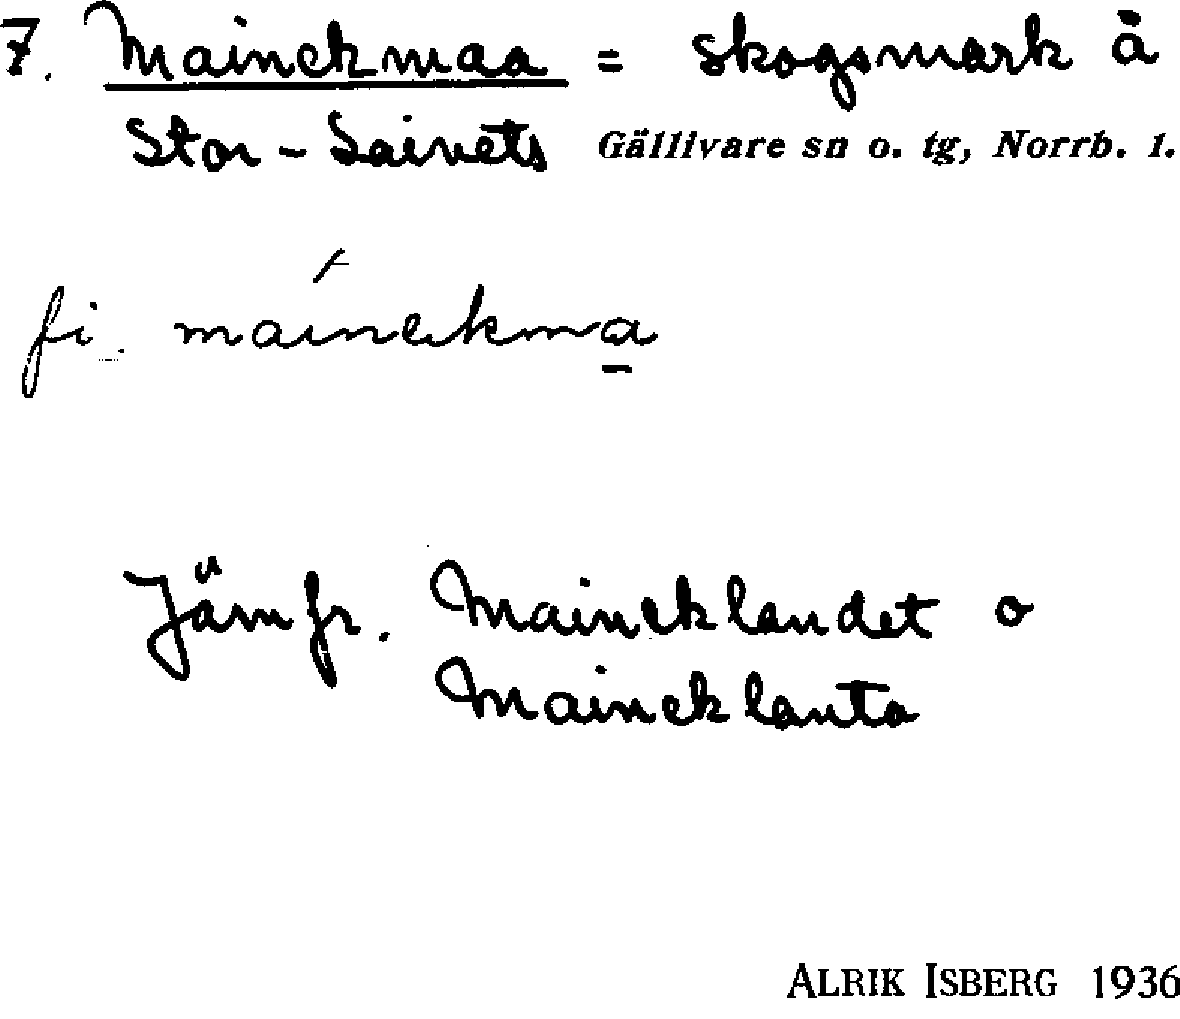 7. Mainekmaa = skogsmark å
Stor-Saivets Gällivare sn o. tg, Norrb. l.
fi. mainekma
Jämfr. Maineklandet o
Maineklanta
ALRIK ISBERG 1936